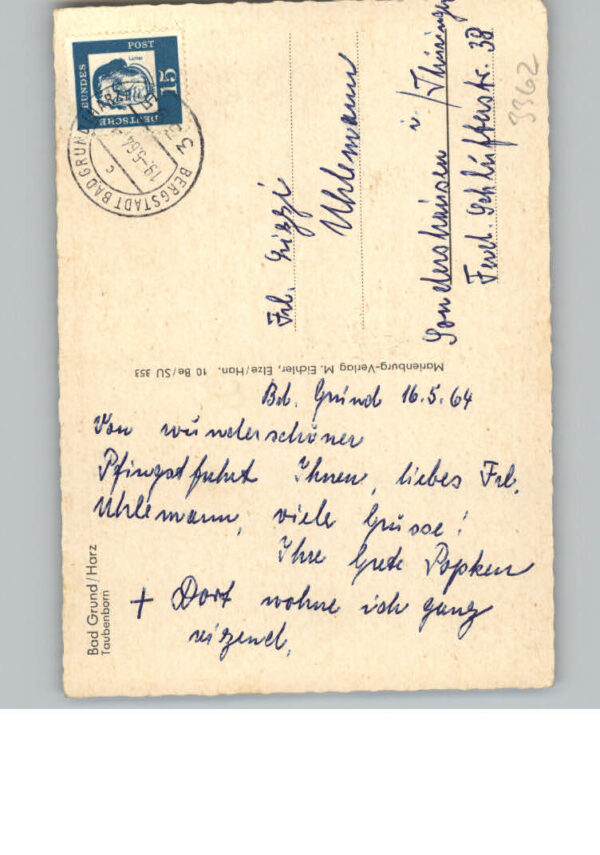 DEUTSCHE
BUNDES
POST
15
Luther
BERGSTADT BAD GRUND
19.-5.64
c
Frl. Lizzi
Uhlemann
Sondershausen i/Thüringen
Ferd. Schlüfterstr. 38
3362
Marienburg-Verlag M. Eichler, Elze/Han. 10 Be/SU 353
Bd. Grund 16.5.64
Von wunderschöner
Pfingstfahrt Ihnen, liebes Frl.
Uhlemann, viele Grüsse!
Ihre Grete Popken
+ Dort wohne ich ganz
reizend.
Bad Grund/Harz
Taubenborn